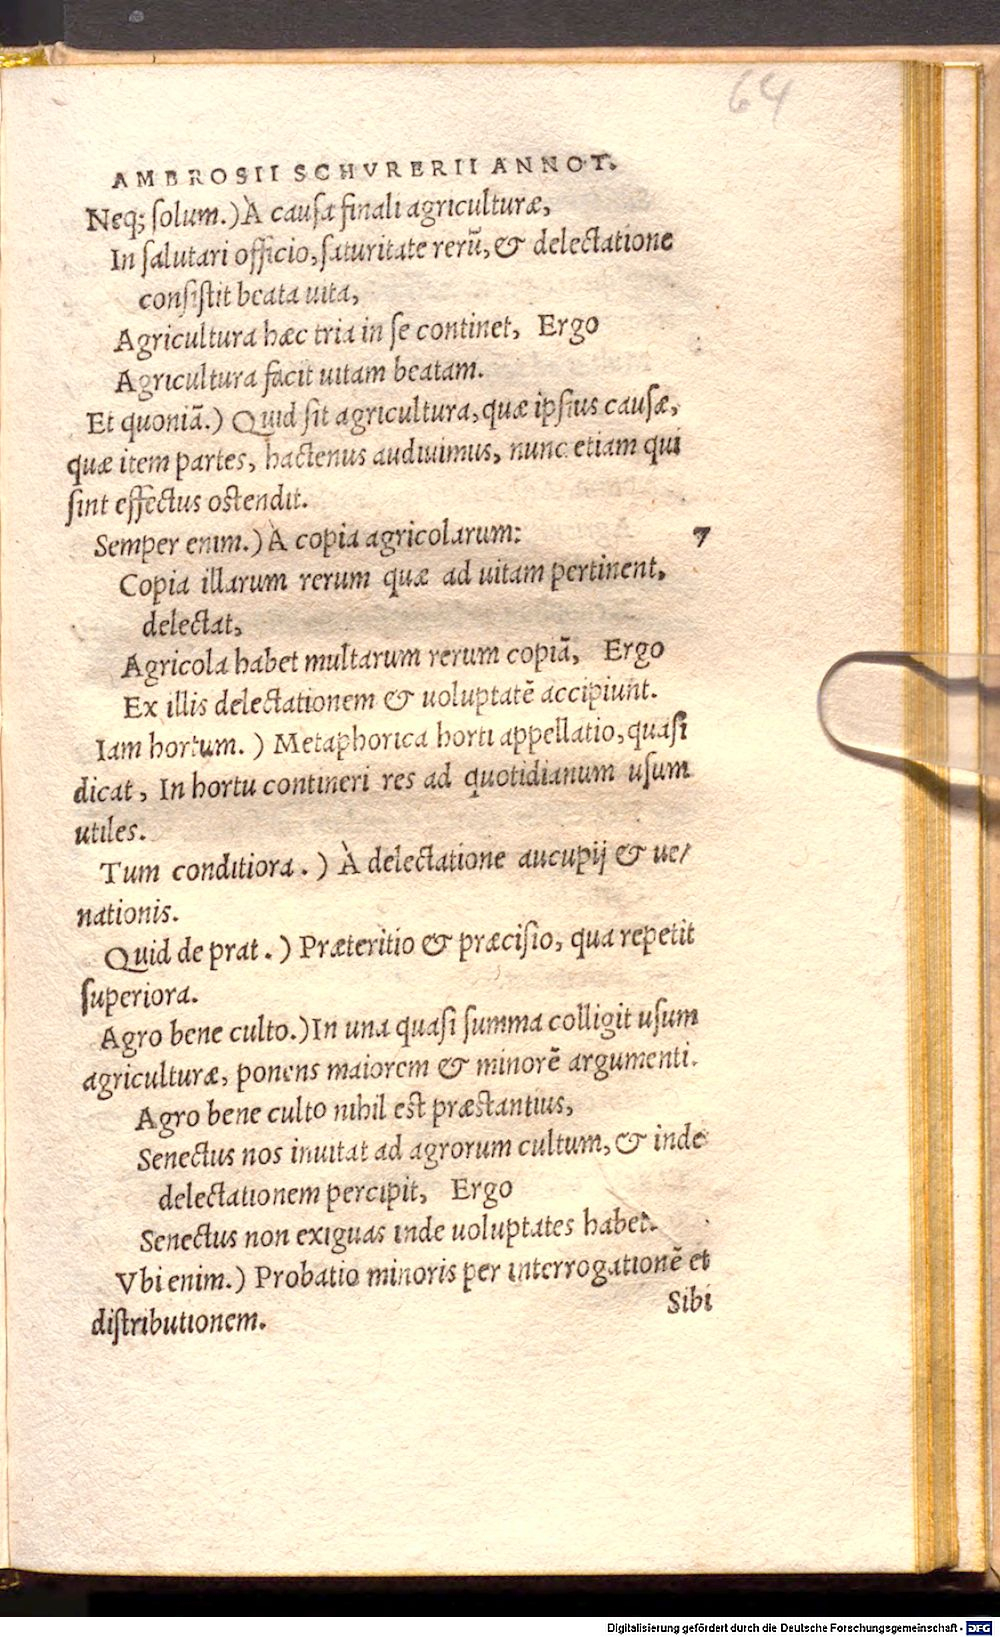 64
AMBROSII SCHVRERII ANNOT.
Neq; ſolum.) À cauſa finali agriculturæ,
In ſalutari officio, ſaturitate rerũ, & delectatione
conſiſtit beata uita,
Agricultura hæc tria in ſe continet, Ergo
Agricultura facit uitam beatam.
Et quoniã.) Quid ſit agricultura, quæ ipſius cauſæ,
quæ item partes, hactenus audiuimus, nunc etiam qui
ſint effectus oſtendit.
Semper enim.) À copia agricolarum: 7
Copia illarum rerum quæ ad uitam pertinent,
delectat,
Agricola habet multarum rerum copiã, Ergo
Ex illis delectationem & uoluptatẽ accipiunt.
Iam hortum.) Metaphorica horti appellatio, quaſi
dicat, In hortu contineri res ad quotidianum uſum
utiles.
Tum conditiora.) À delectatione aucupij & ue/
nationis.
Quid de prat.) Præteritio & præciſio, qua repetit
ſuperiora.
Agro bene culto.) In una quaſi ſumma colligit uſum
agriculturæ, ponens maiorem & minorẽ argumenti.
Agro bene culto nihil eſt præſtantius,
Senectus nos inuitat ad agrorum cultum, & inde
delectationem percipit, Ergo
Senectus non exiguas inde uoluptates habet.
Vbi enim.) Probatio minoris per interrogationẽ et
diſtributionem. Sibi
Digitalisierung gefördert durch die Deutsche Forschungsgemeinschaft - DFG